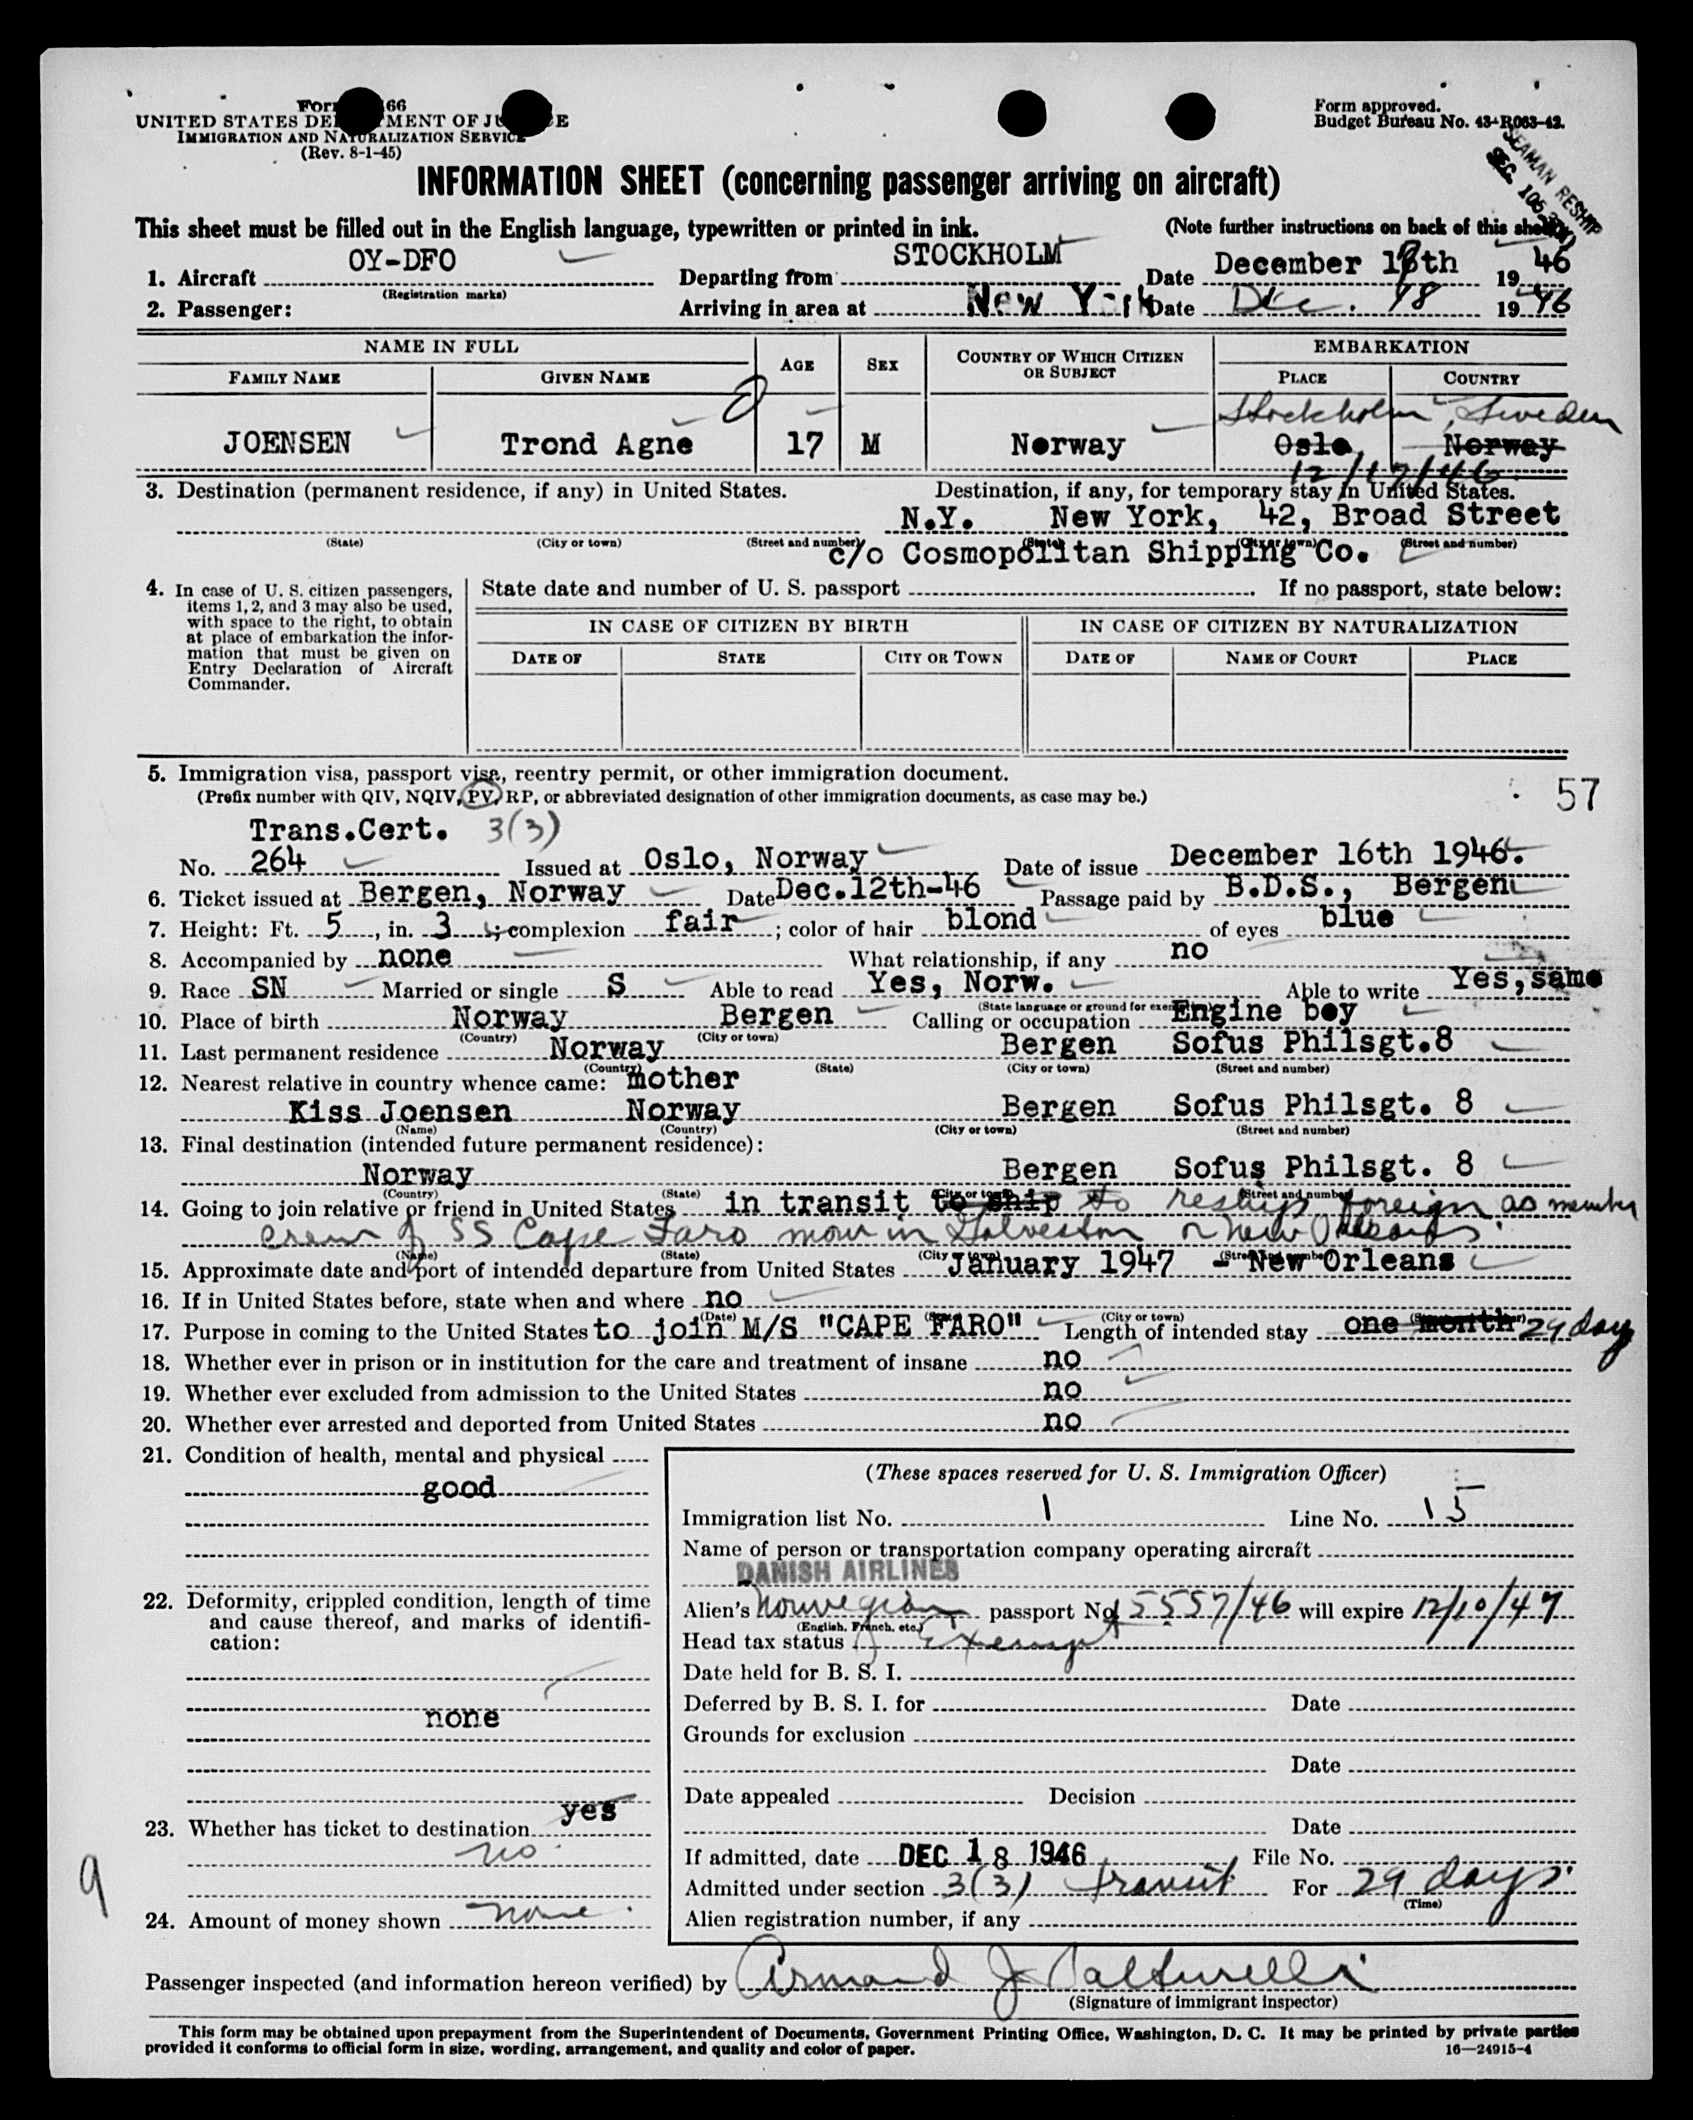 UNITED STATES DE MENT OF JU E
IMMIGRATION AND NATURALIZATION SERVICE
(Rev. 8-1-45)
Form approved.
Budget Bureau No. 43-R063-42.
SEAMAN RESHIP
SEC. 105
INFORMATION SHEET (concerning passenger arriving on aircraft)
This sheet must be filled out in the English language, typewritten or printed in ink. (Note further instructions on back of this sheet)
1. Aircraft OY-DFO Departing from STOCKHOLM Date December 18th 1946
(Registration marks)
2. Passenger: Arriving in area at New York Date Dec. 18 1946
NAME IN FULL AGE SEX COUNTRY OF WHICH CITIZEN OR SUBJECT EMBARKATION
FAMILY NAME GIVEN NAME PLACE COUNTRY
Stockholm, Sweden
JOENSEN Trond Agne 17 M Norway Oslo, Norway
12/17/46
3. Destination (permanent residence, if any) in United States. Destination, if any, for temporary stay in United States.
N.Y. New York, 42, Broad Street
(State) (City or town) (Street and number) (State) (City or town) (Street and number)
c/o Cosmopolitan Shipping Co.
4. In case of U. S. citizen passengers, items 1, 2, and 3 may also be used, with space to the right, to obtain at place of embarkation the information that must be given on Entry Declaration of Aircraft Commander.
State date and number of U. S. passport . If no passport, state below:
IN CASE OF CITIZEN BY BIRTH IN CASE OF CITIZEN BY NATURALIZATION
DATE OF STATE CITY OR TOWN DATE OF NAME OF COURT PLACE
5. Immigration visa, passport visa, reentry permit, or other immigration document.
(Prefix number with QIV, NQIV, PV, RP, or abbreviated designation of other immigration documents, as case may be.)
57
Trans.Cert. 3(3)
No. 264 Issued at Oslo, Norway Date of issue December 16th 1946.
6. Ticket issued at Bergen, Norway Date Dec.12th-46 Passage paid by B.D.S., Bergen
7. Height: Ft. 5, in. 3; complexion fair; color of hair blond of eyes blue
8. Accompanied by none What relationship, if any no
9. Race SN Married or single S Able to read Yes, Norw. Able to write Yes, same
(State language or ground for exemption)
10. Place of birth Norway Bergen Calling or occupation Engine boy
(Country) (City or town)
11. Last permanent residence Norway Bergen Sofus Philsgt.8
(Country) (State) (City or town) (Street and number)
12. Nearest relative in country whence came: mother
Kiss Joensen Norway Bergen Sofus Philsgt. 8
(Name) (Country) (City or town) (Street and number)
13. Final destination (intended future permanent residence):
Norway Bergen Sofus Philsgt. 8
(Country) (State) (City or town) (Street and number)
14. Going to join relative or friend in United States in transit to ship to reship foreign as member
crew of SS Cape Faro now in Galveston or New Orleans.
(Name) (State) (City or town) (Street and number)
15. Approximate date and port of intended departure from United States January 1947 - New Orleans
16. If in United States before, state when and where no
(Date) (State) (City or town) (Street and number)
17. Purpose in coming to the United States to join M/S "CAPE FARO" Length of intended stay one month 29 days
18. Whether ever in prison or in institution for the care and treatment of insane no
19. Whether ever excluded from admission to the United States no
20. Whether ever arrested and deported from United States no
21. Condition of health, mental and physical
good
22. Deformity, crippled condition, length of time and cause thereof, and marks of identification:
none
23. Whether has ticket to destination yes
no
9
24. Amount of money shown none
(These spaces reserved for U. S. Immigration Officer)
Immigration list No. 1 Line No. 15
Name of person or transportation company operating aircraft
DANISH AIRLINES
Alien's Norwegian passport No. 15557/46 will expire 12/10/47
(English, French, etc.)
Head tax status Exempt
Date held for B. S. I.
Deferred by B. S. I. for Date
Grounds for exclusion
Date
Date appealed Decision
Date
If admitted, date DEC 18 1946 File No.
Admitted under section 3(3) transit For 29 days
(Time)
Alien registration number, if any
Passenger inspected (and information hereon verified) by Armand J
(Signature of immigrant inspector)
This form may be obtained upon prepayment from the Superintendent of Documents, Government Printing Office, Washington, D. C. It may be printed by private parties
provided it conforms to official form in size, wording, arrangement, and quality and color of paper.
16—24915-4